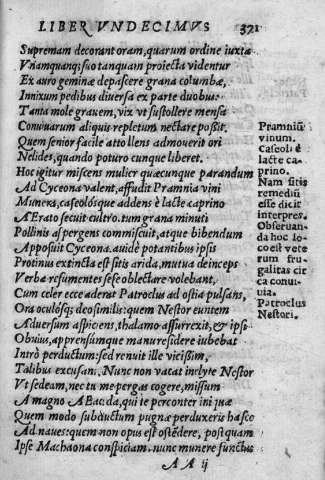 LIBER VNDECIMVS 321
Supremam decorant oram, quarum ordine iuxta
Vnamquanq; suo tanquam proiecta videntur
Ex auro geminæ depascere grana columbæ,
Innixum pedibus diuersa ex parte duobus.
Tanta mole grauem, vix vt sustollere mensa
Conuiuarum aliquis repletum nectare possit.
Quem senior facile attollens admouerit ori
Nelides, quando poturo cunque liberet.
Hoc igitur miscens mulier quæcunque parandum
Ad Cyceona valent, affudit Pramnia vini
Munera, caseolósque addens è lacte caprino
AErato secuit cultro. tum grana minuti
Pollinis aspergens commiscuit, atque bibendum
Apposuit Cyceona. auidè potantibus ipsis
Protinus extincta est sitis arida, mutua deinceps
Verba resumentes sese oblectare volebant,
Cum celer ecce aderat Patroclus ad ostia pulsans,
Ora oculósq; deo similis: quem Nestor euntem
Aduersum aspiciens, thalamo assurrexit, & ipsi
Obuius, apprensúmque manu residere iubebat
Intrò perductum: sed renuit ille vicissim,
Talibus excusans. Nunc non vacat inclyte Nestor
Vt sedeam, nec tu me pergas cogere, missum
A magno AEacida, qui te perconter iniquæ
Quem modo subductum pugnæ perduxeris hasce
Ad naues: quem non opus est ostēdere, postquam
Ipse Machaona conspiciam. nunc munere functus
AA ij
Pramniū
vinum.
Caseoli è
lacte ca-
prino.
Nam sitis
remediū
esse dicit
interpres.
Obseruan-
da hoc lo-
co est vete
rum fru-
galitas cir
ca conui-
uia.
Patroclus
Nestori.